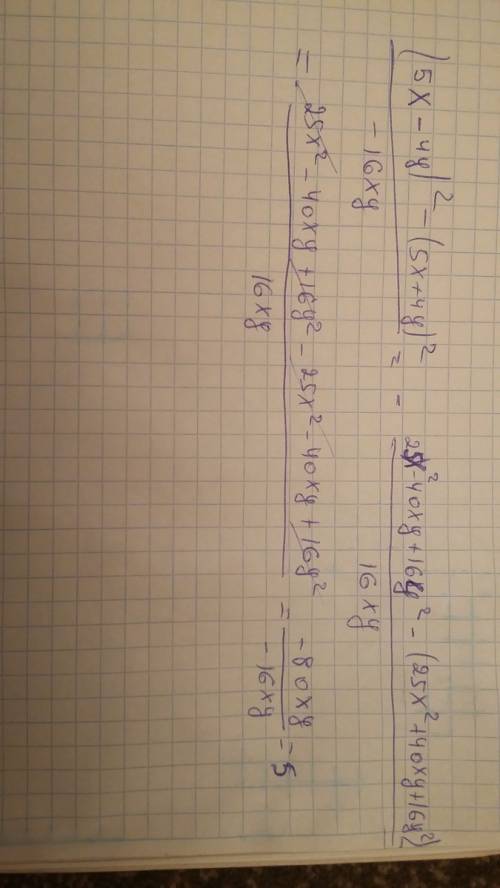 (5x - 4y)² - (5x + 4y)² = - 25x² - 40xy + 16y² - (25x² + 40xy + 16y²)
- 16xy 16xy
= - 25x² - 40xy + 16y² - 25x² - 40xy + 16y² = - 80xy = 5
16xy - 16xy